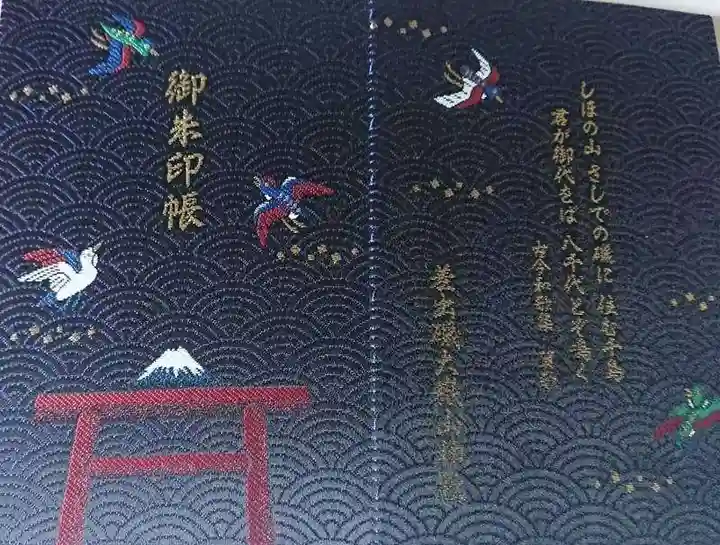 しほの山 さしでの磯に 住む千鳥
君が御代をば 八千代とぞ鳴く
古今和歌集 賀歌
差出磯大嶽山神社
御朱印帳